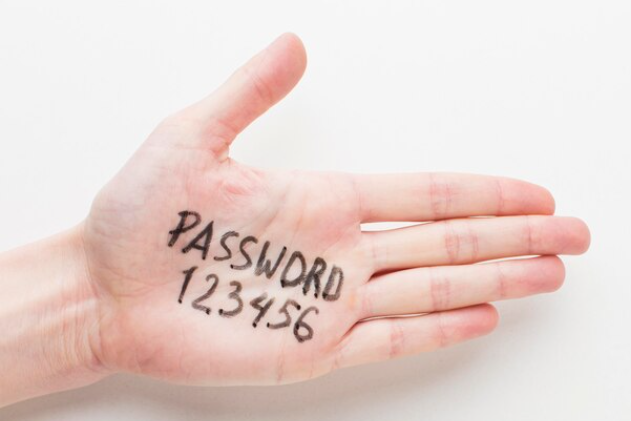 PASSWORD
123456